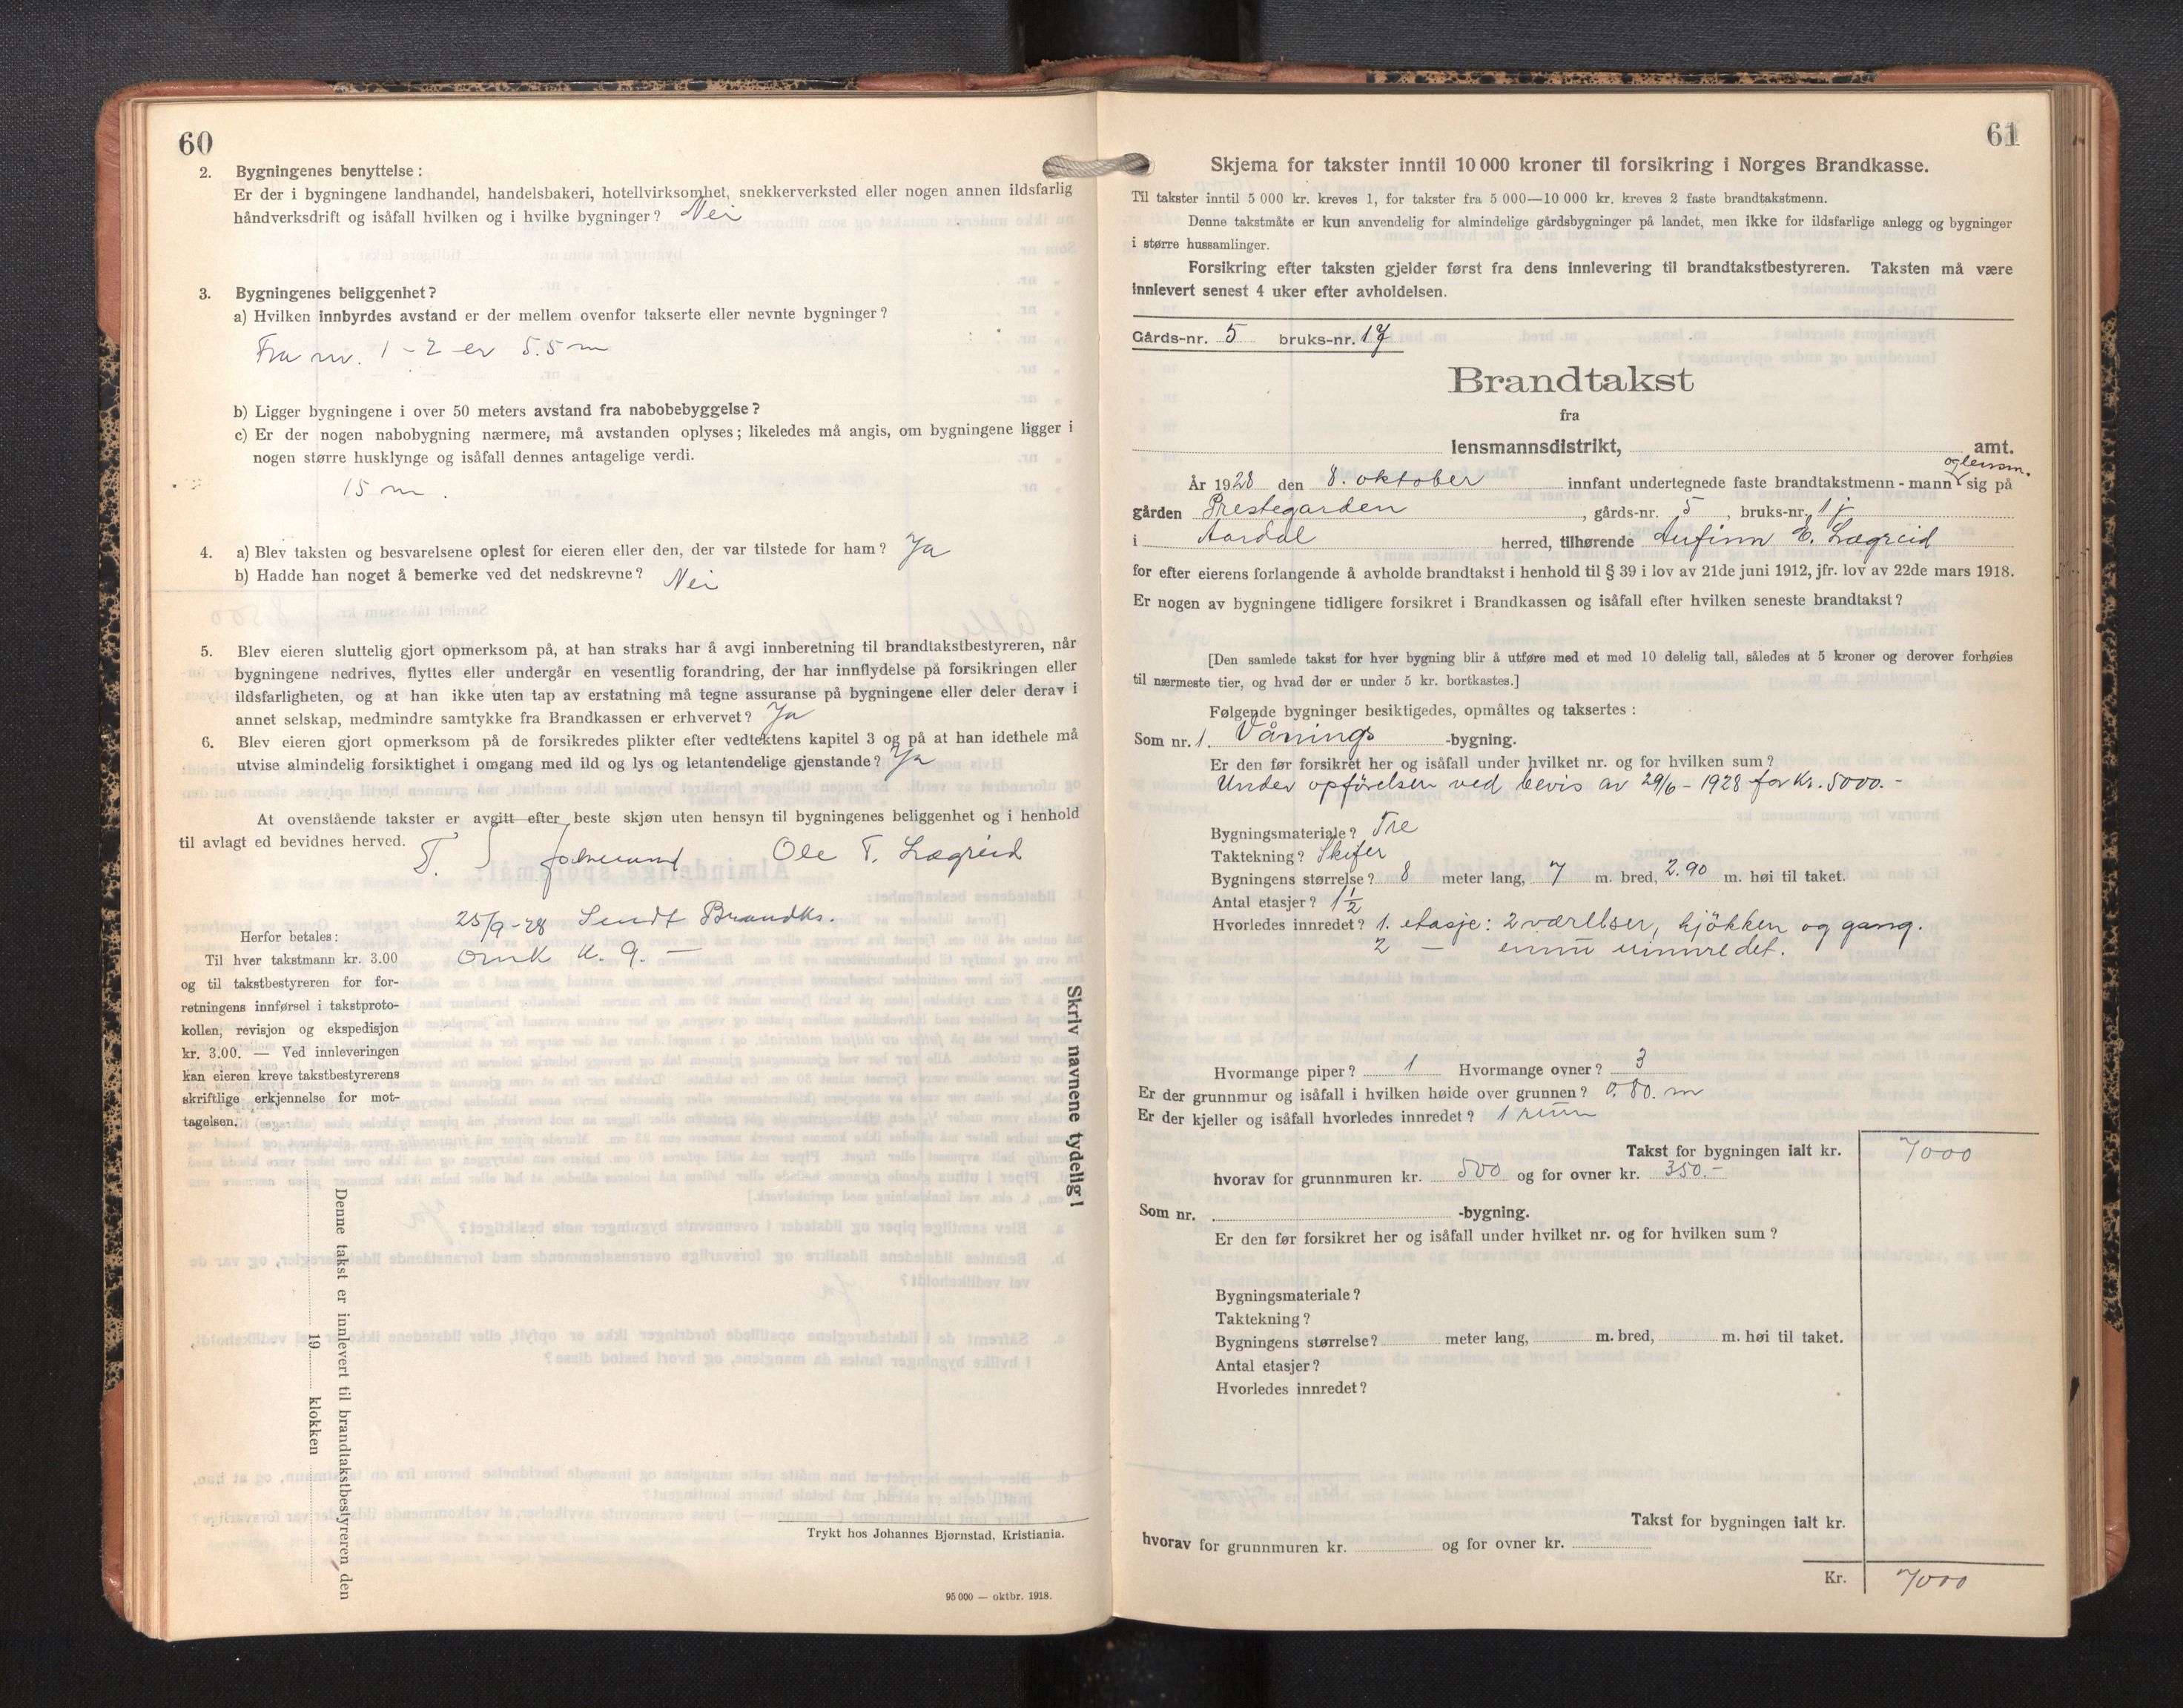 60
2. Bygningenes benyttelse:
Er der i bygningene landhandel, handelsbakeri, hotellvirksomhet, snekkerverksted eller nogen annen ildsfarlig
håndverksdrift og isåfall hvilken og i hvilke bygninger? Nei
3. Bygningenes beliggenhet?
a) Hvilken innbyrdes avstand er der mellem ovenfor takserte eller nevnte bygninger?
Fra nr. 1-2 er 5.5 m
b) Ligger bygningene i over 50 meters avstand fra nabobebyggelse?
c) Er der nogen nabobygning nærmere, må avstanden oplyses; likeledes må angis, om bygningene ligger i
nogen større husklynge og isåfall dennes antagelige verdi.
15 m.
4. a) Blev taksten og besvarelsene oplest for eieren eller den, der var tilstede for ham? Ja
b) Hadde han noget å bemerke ved det nedskrevne? Nei
5. Blev eieren sluttelig gjort opmerksom på, at han straks har å avgi innberetning til brandtakstbestyreren, når
bygningene nedrives, flyttes eller undergår en vesentlig forandring, der har innflydelse på forsikringen eller
ildsfarligheten, og at han ikke uten tap av erstatning må tegne assuranse på bygningene eller deler derav i
annet selskap, medmindre samtykke fra Brandkassen er erhvervet? Ja
6. Blev eieren gjort opmerksom på de forsikredes plikter efter vedtektens kapitel 3 og på at han idethele må
utvise almindelig forsiktighet i omgang med ild og lys og letantendelige gjenstande? Ja
At ovenstående takster er avgitt efter beste skjøn uten hensyn til bygningenes beliggenhet og i henhold
til avlagt ed bevidnes herved.
Ole T. Lægreid
25/9-28 Sendt Brandks.
Herfor betales:
Til hver takstmann kr. 3.00
og til takstbestyreren for for-
retningens innførsel i takstproto-
kollen, revisjon og ekspedisjon
kr. 3.00. — Ved innleveringen
kan eieren kreve takstbestyrerens
skriftlige erkjennelse for mot-
tagelsen.
Skriv navnene tydelig!
Denne takst er innlevert til brandtakstbestyreren den
19 klokken
Trykt hos Johannes Bjørnstad, Kristiania.
95 000 — oktbr. 1918.
61
Skjema for takster inntil 10 000 kroner til forsikring i Norges Brandkasse.
Til takster inntil 5 000 kr. kreves 1, for takster fra 5 000—10 000 kr. kreves 2 faste brandtakstmenn.
Denne takstmåte er kun anvendelig for almindelige gårdsbygninger på landet, men ikke for ildsfarlige anlegg og bygninger
i større hussamlinger.
Forsikring efter taksten gjelder først fra dens innlevering til brandtakstbestyreren. Taksten må være
innlevert senest 4 uker efter avholdelsen.
Gårds-nr. 5 bruks-nr. 17
Brandtakst
fra
lensmannsdistrikt, amt.
og lensm.
År 1928 den 8. oktober innfant undertegnede faste brandtakstmenn - mann sig på
gården Prestegarden, gårds-nr. 5, bruks-nr.
i Aardal herred, tilhørende Anfinn E. Lægreid
for efter eierens forlangende å avholde brandtakst i henhold til § 39 i lov av 21de juni 1912, jfr. lov av 22de mars 1918.
Er nogen av bygningene tidligere forsikret i Brandkassen og isåfall efter hvilken seneste brandtakst?
[Den samlede takst for hver bygning blir å utføre med et med 10 delelig tall, således at 5 kroner og derover forhøies
til nærmeste tier, og hvad der er under 5 kr. bortkastes.]
Følgende bygninger besiktigedes, opmåltes og taksertes:
Som nr. 1. Vånings -bygning.
Er den før forsikret her og isåfall under hvilket nr. og for hvilken sum?
Under opførelsen ved bevis av 29/6-1928 for Kr. 5000.-
Bygningsmateriale? Tre
Taktekning? Skifer
Bygningens størrelse? 8 meter lang, 7 m. bred, 2.90 m. høi til taket.
Antal etasjer? 1 1/2
Hvorledes innredet? 1. etasje: 2 værelser, kjökken og gang.
2 — ennu uinnredet.
Hvormange piper? 1 Hvormange ovner? 3
Er der grunnmur og isåfall i hvilken høide over grunnen? 0.80. m
Er der kjeller og isåfall hvorledes innredet? 1 rum
Takst for bygningen ialt kr. 7000
hvorav for grunnmuren kr. 500 og for ovner kr. 350.-
Som nr. -bygning.
Er den før forsikret her og isåfall under hvilket nr. og for hvilken sum?
Bygningsmateriale?
Taktekning?
Bygningens størrelse? meter lang, m. bred, m. høi til taket.
Antal etasjer?
Hvorledes innredet?
Takst for bygningen ialt kr.
hvorav for grunnmuren kr. og for ovner kr.
Kr. 7000